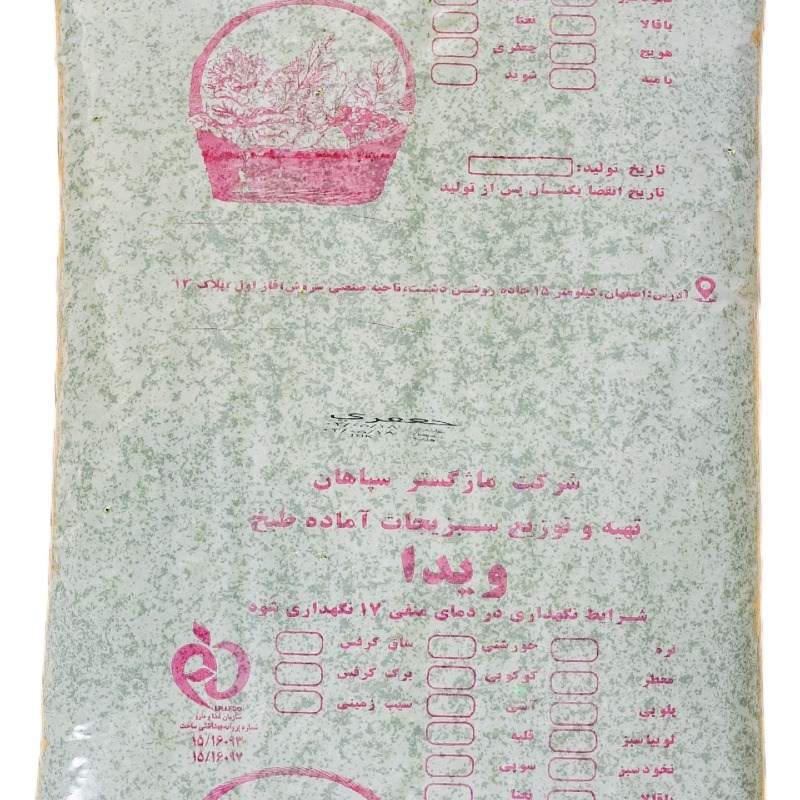 باقالا نعنا
هویج جعفری
بامیه شوید
تاریخ تولید:
تاریخ انقضا یکسال پس از تولید
آدرس: اصفهان، کیلومتر ۱۵ جاده روشن دشت، ناحیه صنعتی سروش، فاز اول، پلاک ۱۳
جعفری
شرکت ماژگستر سپاهان
تهیه و توزیع سبزیجات آماده طبخ
ویدا
شرایط نگهداری در دمای منفی ۱۷ نگهداری شود
تره خورشتی ساق کرفس
معطر کوکویی برگ کرفس
پلویی آشی سیب زمینی
لوبیا سبز قلیه
نخود سبز سوپی
باقالا نعنا
سازمان غذا و دارو
شماره پروانه بهداشتی ساخت
۱۵/۱۶۰۹۳
۱۵/۱۶۰۹۷